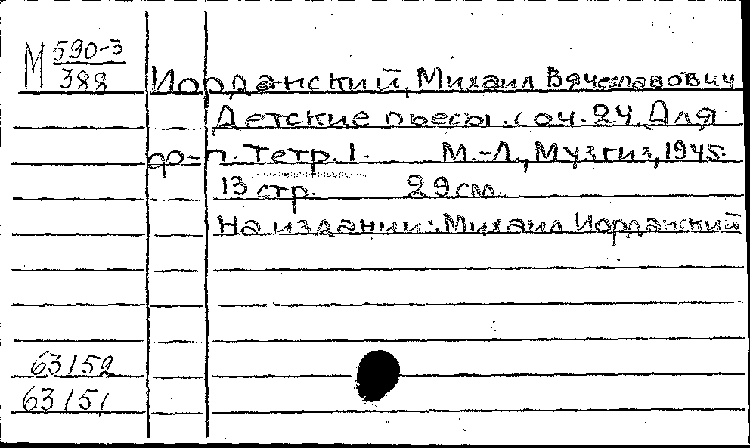 М 590-3
388
Иорданский, Михаил Вячеславович
Детские пьесы. соч. 24. Для
ф-п. Тетр. 1. М.-Л., Музгиз, 1945.
13 стр. 29 см.
На издании: Михаил Иорданский
63152
63151